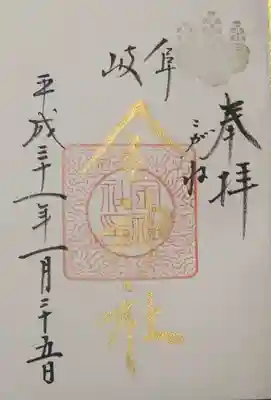 奉拝
こがね
岐阜
金神社
平成三十一年一月二十五日